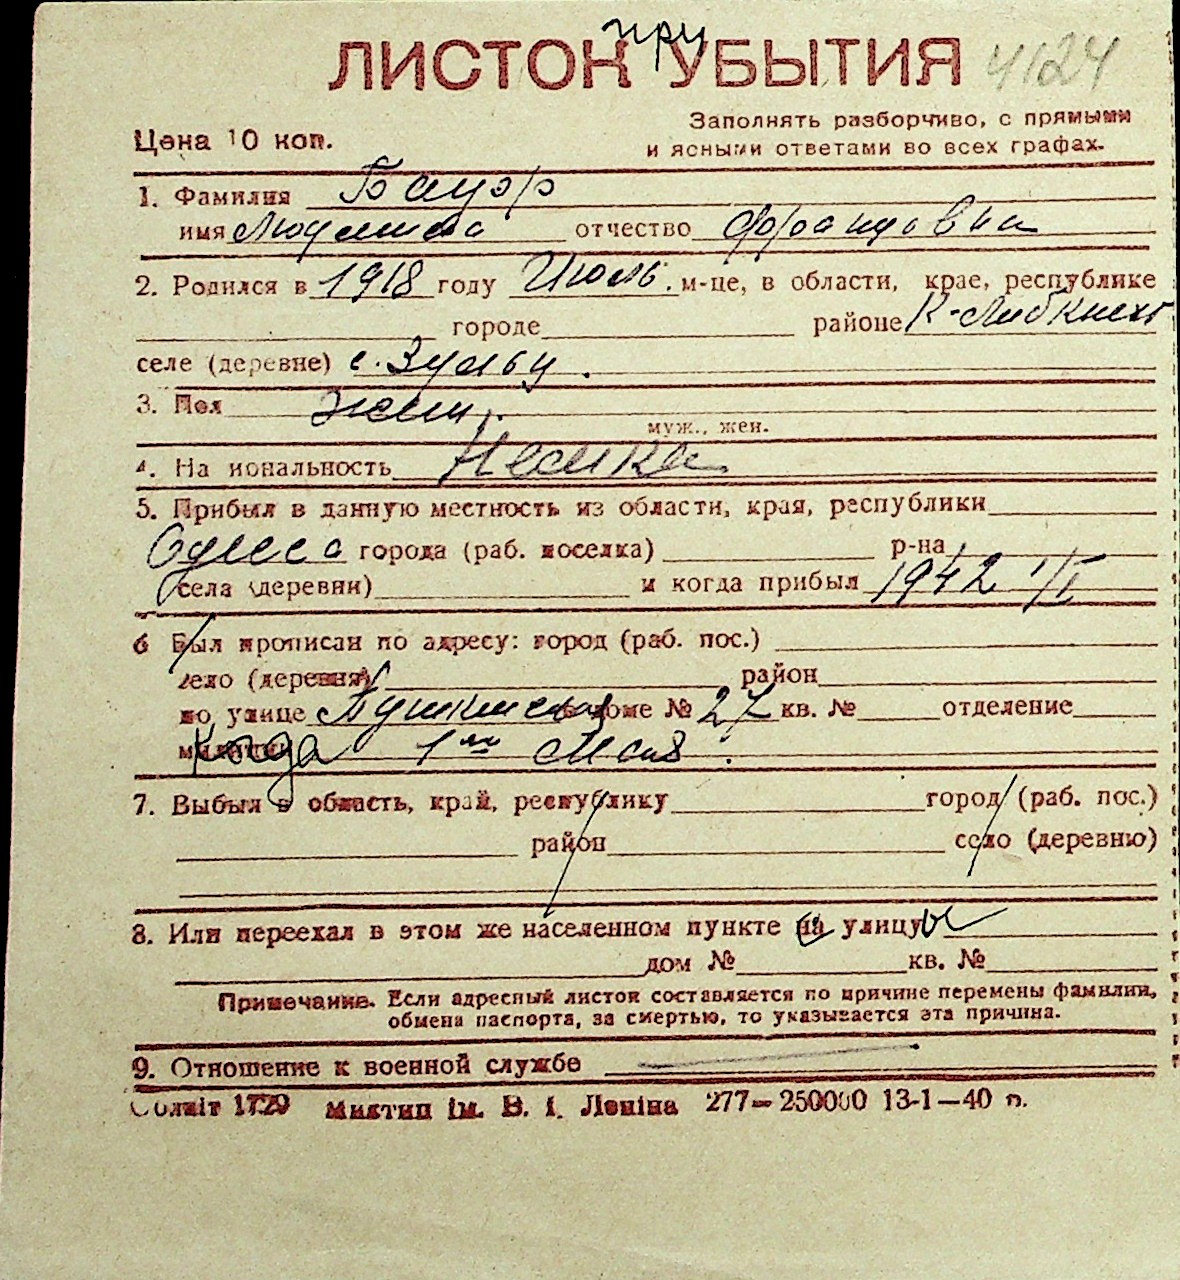 при
ЛИСТОК УБЫТИЯ 4124
Цена 10 коп.
Заполнять разборчиво, с прямыми
и ясными ответами во всех графах.
1. Фамилия Бауэр
имя Людмила отчество Францовна
2. Родился в 1918 году Июль м-це, в области, крае, республике
городе районе К-Либкнехт
селе (деревне) с. Зульцу.
3. Пол жен.
муж., жен.
4. На иональность Немка
5. Прибыл в данную местность из области, края, республики
Одесса города (раб. поселка) р-на
села (деревни) и когда прибыл 1942 1/I
6 Был прописан по адресу: город (раб. пос.)
село (деревня) район
по улице Пушкинская доме № 27 кв. № отделение
милиции Когда 1го Мая.
7. Выбыл в область, край, республику город (раб. пос.)
район село (деревню)
8. Или переехал в этом же населенном пункте на с улицу ы
дом № кв. №
Примечание. Если адресный листок составляется по причине перемены фамилии,
обмена паспорта, за смертью, то указывается эта причина.
9. Отношение к военной службе
Облліт 1729 Миктип ім. В. І. Леніна 277—250000 13-1—40 р.